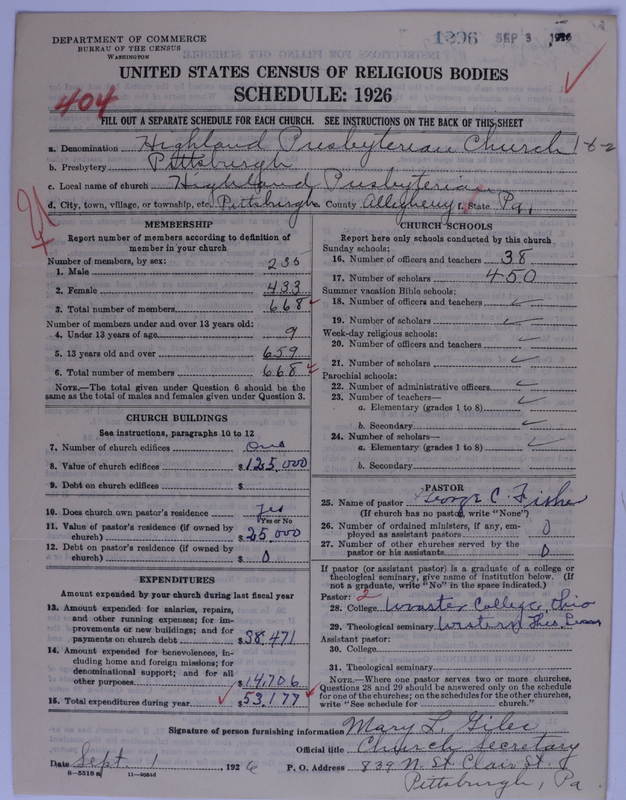 DEPARTMENT OF COMMERCE
BUREAU OF THE CENSUS
WASHINGTON
1296 SEP 3 1926
UNITED STATES CENSUS OF RELIGIOUS BODIES
SCHEDULE: 1926
404
FILL OUT A SEPARATE SCHEDULE FOR EACH CHURCH. SEE INSTRUCTIONS ON THE BACK OF THIS SHEET
a. Denomination Highland Presbyterian Church 1-8-2
b. Presbytery Pittsburgh
c. Local name of church Highland Presbyterian
d. City, town, village, or township, etc. Pittsburgh County Allegheny f. State Pa.
MEMBERSHIP
Report number of members according to definition of
member in your church
Number of members, by sex:
1. Male 235
2. Female 433
3. Total number of members 668
Number of members under and over 13 years old:
4. Under 13 years of age 9
5. 13 years old and over 659
6. Total number of members 668
NOTE.—The total given under Question 6 should be
same as the total of males and females given under Question 3.
CHURCH BUILDINGS
See instructions, paragraphs 10 to 12
7. Number of church edifices One
8. Value of church edifices $125,000
9. Debt on church edifices $
10. Does church own pastor's residence? Yes
Yes or No
11. Value of pastor's residence (if owned by
church) $25,000
12. Debt on pastor's residence (if owned by
church) $ 0
EXPENDITURES
Amount expended by your church during last fiscal year
13. Amount expended for salaries, repairs,
and other running expenses; for im-
provements or new buildings; and for
payments on church debt $38,471
14. Amount expended for benevolences, in-
cluding home and foreign missions; for
denominational support; and for all
other purposes $14,706
15. Total expenditures during year $53,177
CHURCH SCHOOLS
Report here only schools conducted by this church
Sunday schools:
16. Number of officers and teachers 38
17. Number of scholars 450
Summer vacation Bible schools:
18. Number of officers and teachers
19. Number of scholars
Week-day religious schools:
20. Number of officers and teachers
21. Number of scholars
Parochial schools:
22. Number of administrative officers
23. Number of teachers—
a. Elementary (grades 1 to 8)
b. Secondary
24. Number of scholars—
a. Elementary (grades 1 to 8)
b. Secondary
PASTOR
25. Name of pastor George C. Fisher
(If church has no pastor, write "None")
26. Number of ordained ministers, if any, em-
ployed as assistant pastors 0
27. Number of other churches served by the
pastor or his assistants 0
If pastor (or assistant pastor) is a graduate of a college or
theological seminary, give name of institution below. (If
not a graduate, write "No" in the space indicated.)
Pastor: 2
28. College Wooster College, Ohio
29. Theological seminary Western Theo. Sem
Assistant pastor:
30. College
31. Theological seminary
NOTE.—Where one pastor serves two or more churches,
Questions 28 and 29 should be answered only on the schedule
for one of the churches; on the schedules for the other churches,
write "See Schedule for church."
Signature of person furnishing information Mary L. Giles
Official title Church Secretary
Date Sept. 1 1926 P. O. Address 839 N. St. Clair St.
8-5518a 11-9054d
Pittsburgh, Pa